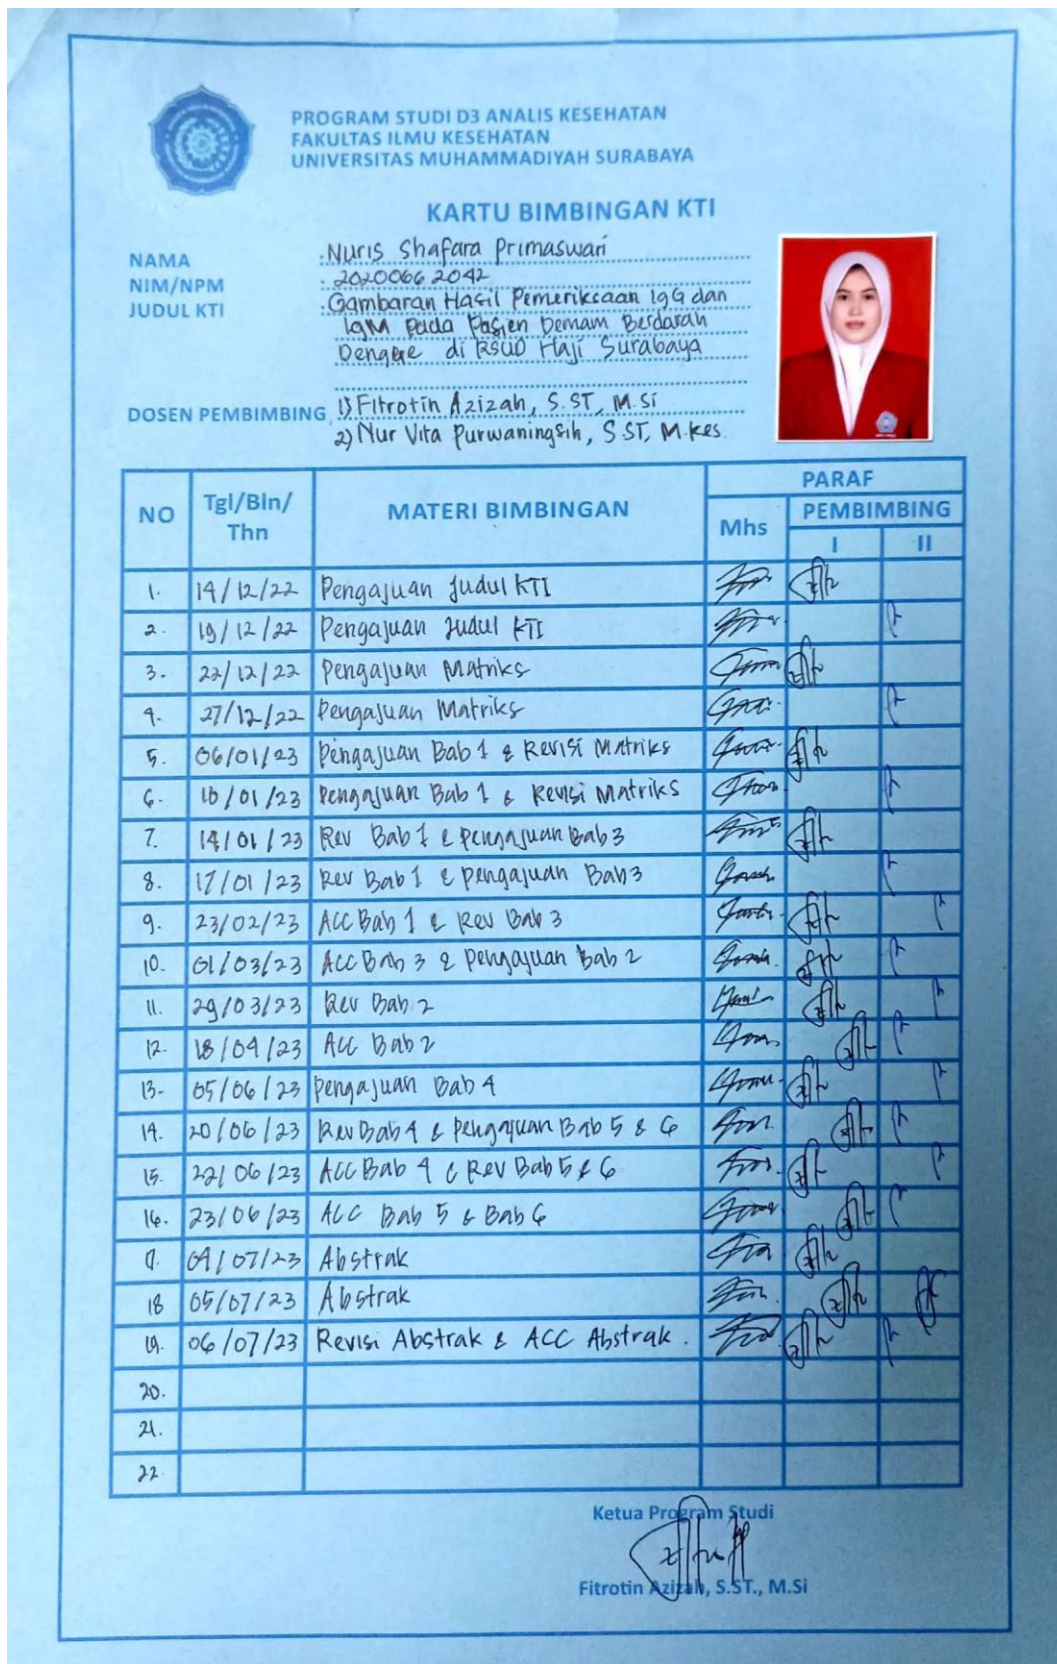 PROGRAM STUDI D3 ANALIS KESEHATAN
FAKULTAS ILMU KESEHATAN
UNIVERSITAS MUHAMMADIYAH SURABAYA
KARTU BIMBINGAN KTI
NAMA : Nuris Shafara Primaswari
NIM/NPM : 20200662042
JUDUL KTI : Gambaran Hasil Pemeriksaan IgG dan
IgM pada Pasien Demam Berdarah
Dengue di RSUD Haji Surabaya
DOSEN PEMBIMBING 1) Fitrotin Azizah, S.ST, M.Si
2) Nur Vita Purwaningsih, S.ST, M.Kes.
NO Tgl/Bln/Thn MATERI BIMBINGAN PARAF
Mhs PEMBIMBING
I II
1. 14/12/22 Pengajuan Judul KTI
2. 19/12/22 Pengajuan Judul KTI
3. 22/12/22 Pengajuan Matriks
4. 27/12/22 Pengajuan Matriks
5. 06/01/23 Pengajuan Bab 1 & Revisi Matriks
6. 10/01/23 Pengajuan Bab 1 & Revisi Matriks
7. 14/01/23 Rev Bab 1 & Pengajuan Bab 3
8. 17/01/23 Rev Bab 1 & Pengajuan Bab 3
9. 23/02/23 ACC Bab 1 & Rev Bab 3
10. 01/03/23 ACC Bab 3 & Pengajuan Bab 2
11. 29/03/23 Rev Bab 2
12. 18/04/23 ACC Bab 2
13. 05/06/23 Pengajuan Bab 4
14. 20/06/23 Rev Bab 4 & Pengajuan Bab 5 & 6
15. 22/06/23 ACC Bab 4 & Rev Bab 5 & 6
16. 23/06/23 ACC Bab 5 & Bab 6
17. 04/07/23 Abstrak
18 05/07/23 Abstrak
19. 06/07/23 Revisi Abstrak & ACC Abstrak.
20.
21.
22.
Ketua Program Studi
Fitrotin Azizah, S.ST., M.Si